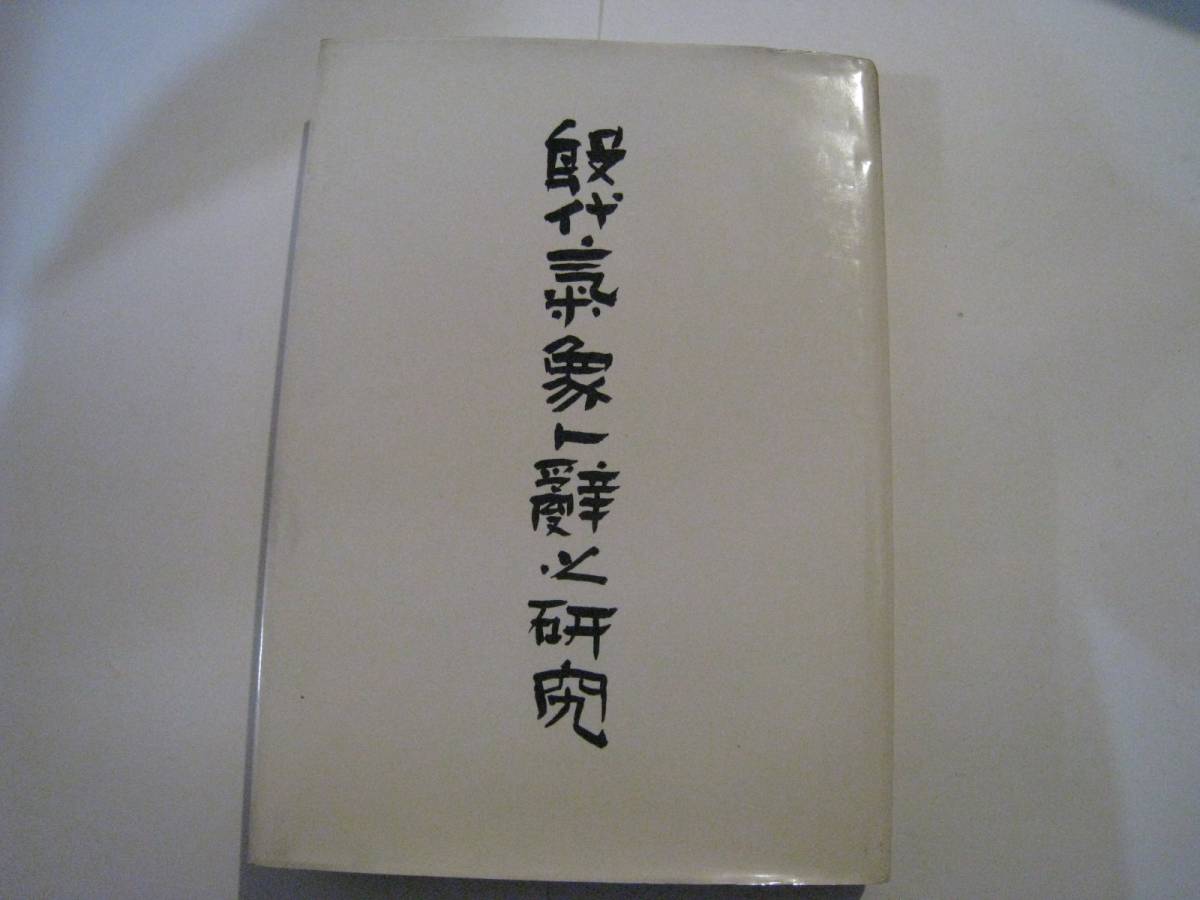 殷代氣象卜辭之研究